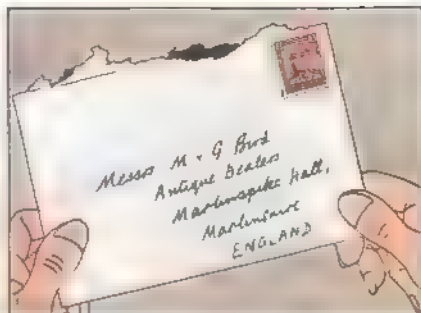 Messrs M + G Bird
Antique Dealers
Marlinspike Hall,
Marlinspike
ENGLAND